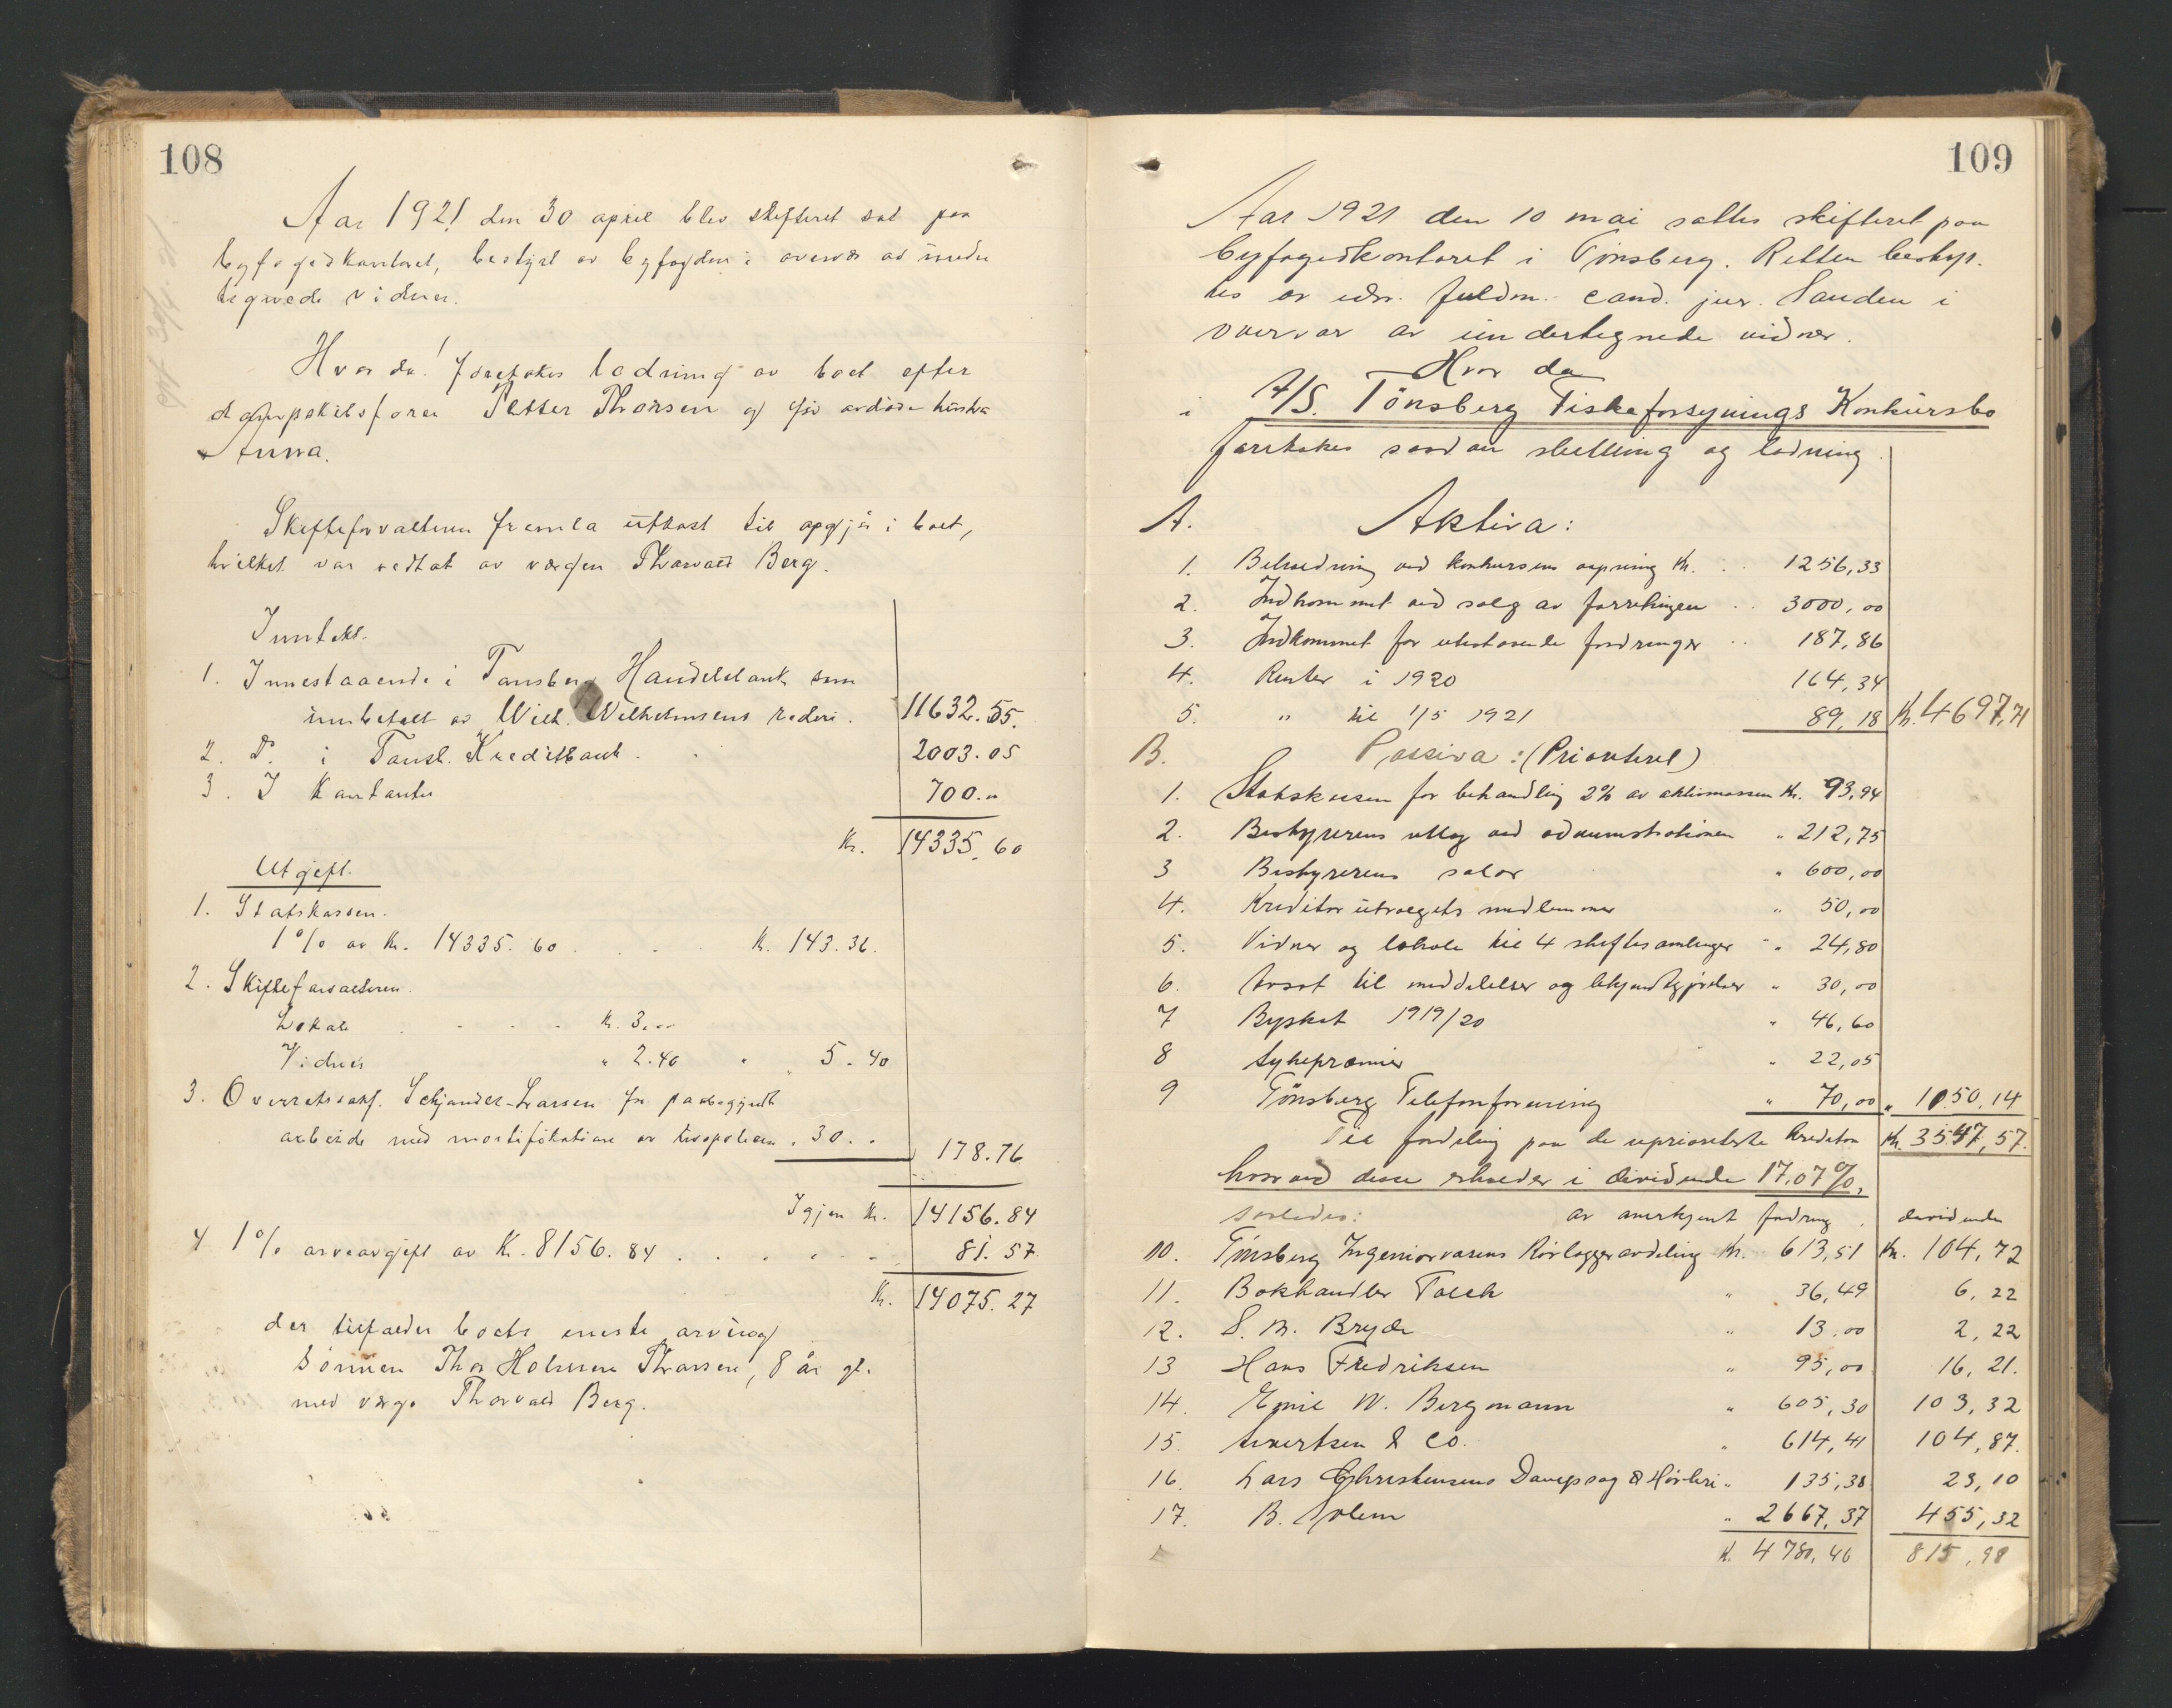 108
Aar 1921 den 30 april blev skifteret sat paa
byfogedkontoret, bestyrt av byfogden i overvær av under
tegnede vidner.
Hvor da! foretokes lodning av boet efter
dampskibsfører Petter Thorsen og før avdøde hustru
Anna.
Skifteforvalteren fremla utkast til opgjør i boet,
hvilket var vedtat av vergen Thorvald Berg.
Inntekt.
1. Innestaaende i Tønsberg Handelsbank som
innbetalt av Wilh. Wilhelmsens rederi. 11632.55.
2. Do. i Tønsb. Kreditbank. 2003.05
3. I Kontanter 700.„
Kr. 14335.60
Utgift.
1. Statskassen.
1% av Kr. 14335.60 . . . K. 143.36.
2. Skifteforvalteren.
Lokale . . . . Kr. 3.„
Vidner „ 2.40 „ 5.40
3. Overretssakf. Schjander-Larsen for paabegynt
arbeide med mortifikation av livspolicen „ 30.„ 178.76
Igjen Kr. 14156.84
4 1% arveavgift av Kr. 8156.84 . . . . . 81.57
Kr. 14075.27
der tilfalder boets eneste arving
sönnen Thor Holmen Thorsen, 8 år gl.
med verge Thorvald Berg.
109
Aar 1921 den 10 mai sattes skifteret paa
byfogedkontoret i Tönsberg. Retten bestyr-
tes av edsv. fuldm. cand. jur. Sanden i
overvær av undertegnede vidner.
Hvor da
i A/S. Tönsberg Fiskeforsynings Konkursbo
foretokes saadan stelling og lodning.
A. Aktiva:
1. Beholdning ved konkursens aapning Kr. . . 1256,33
2. Indkommet ved salg av forretningen . . 3000,00
3. Indkommet for utestaaende fordringer . . 187,86
4. Renter i 1920 164,34
5. „ til 1/5 1921 89,18 Kr. 4697,71
B. Passiva: (Prioritert)
1. Statskassen for behandling 2% av aktivmassen Kr. 93,94
2. Bestyrerens utlæg ved administrationen „ 212,75
3 Bestyrerens salær „ 600,00
4. Kreditorutvalgets medlemmer „ 50,00
5. Vidner og lokale til 4 skiftesamlinger „ 24,80
6. Avsat til meddelelser og bekjendtgjørelser „ 30,00
7 Byskat 1919/20 „ 46,60
8 Sykepræmier „ 22,05
9 Tönsberg Telefonforening „ 70,00 „ 1050,14
Til fordeling paa de uprioriterte kreditorer Kr. 3547,57.
hvorved disse erholder i dividende 17,07%,
saaledes: av anerkjent fordring. dividende
10. Tönsberg Ingeniørvæsens Rørlæggeravdeling Kr. 613,51 Kr. 104,72
11. Bokhandler Falch „ 36,49 6,22
12. S. M. Bryde „ 13,00 2,22
13 Hans Fredriksen „ 95,00 16,21.
14. Emil W. Bergmann „ 605,30 103,32
15. Sivertsen & Co. „ 614,41 104,87.
16. Lars Christensens Dampsag & Høvleri „ 135,38 23,10
17. B. Solem „ 2667,37 455,32
K. 4780,46 815,98